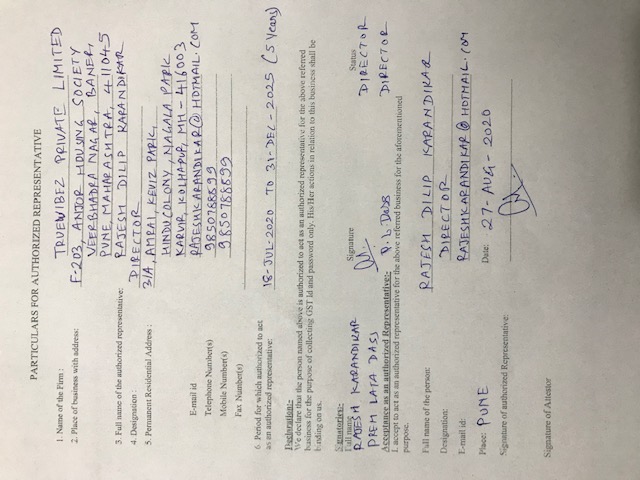 PARTICULARS FOR AUTHORIZED REPRESENTATIVE
1. Name of the Firm : TRUEVIBEZ PRIVATE LIMITED
2. Place of business with address: F-203, ANJOR HOUSING SOCIETY
VEERBHADRA NAGAR, BANER,
PUNE, MAHARASHTRA, 411045
3. Full name of the authorized representative: RAJESH DILIP KARANDIKAR
4. Designation : DIRECTOR
5. Permanent Residential Address : 31A, AMRAI, KEVIZ PARK,
HINDU COLONY, NAGALA PARK
KARVIR, KOLHAPUR, MH - 416003
E-mail id RAJESHKARANDIKAR@HOTMAIL.COM
Telephone Number(s) 9850788899
Mobile Number(s) 9850788899
Fax Number(s)
6. Period for which authorized to act
as an authorized representative: 18-JUL-2020 TO 31-DEC-2025 (5 Years)
Declaration:-
We declare that the person named above is authorized to act as an authorized representative for the above referred
business for the purpose of collecting GST Id and password only. His/Her actions in relation to this business shall be
binding on us.
Signatories:-
Full name Signature Status
RAJESH KARANDIKAR DIRECTOR
PREM LATA DASS P. L. Dass DIRECTOR
Acceptance as an authorized Representative:-
I accept to act as an authorized representative for the above referred business for the aforementioned
purpose.
Full name of the person: RAJESH DILIP KARANDIKAR
Designation: DIRECTOR
E-mail id: RAJESHKARANDIKAR@HOTMAIL.COM
Place: PUNE Date: 27-AUG-2020
Signature of authorized Representative:
Signature of Attestor